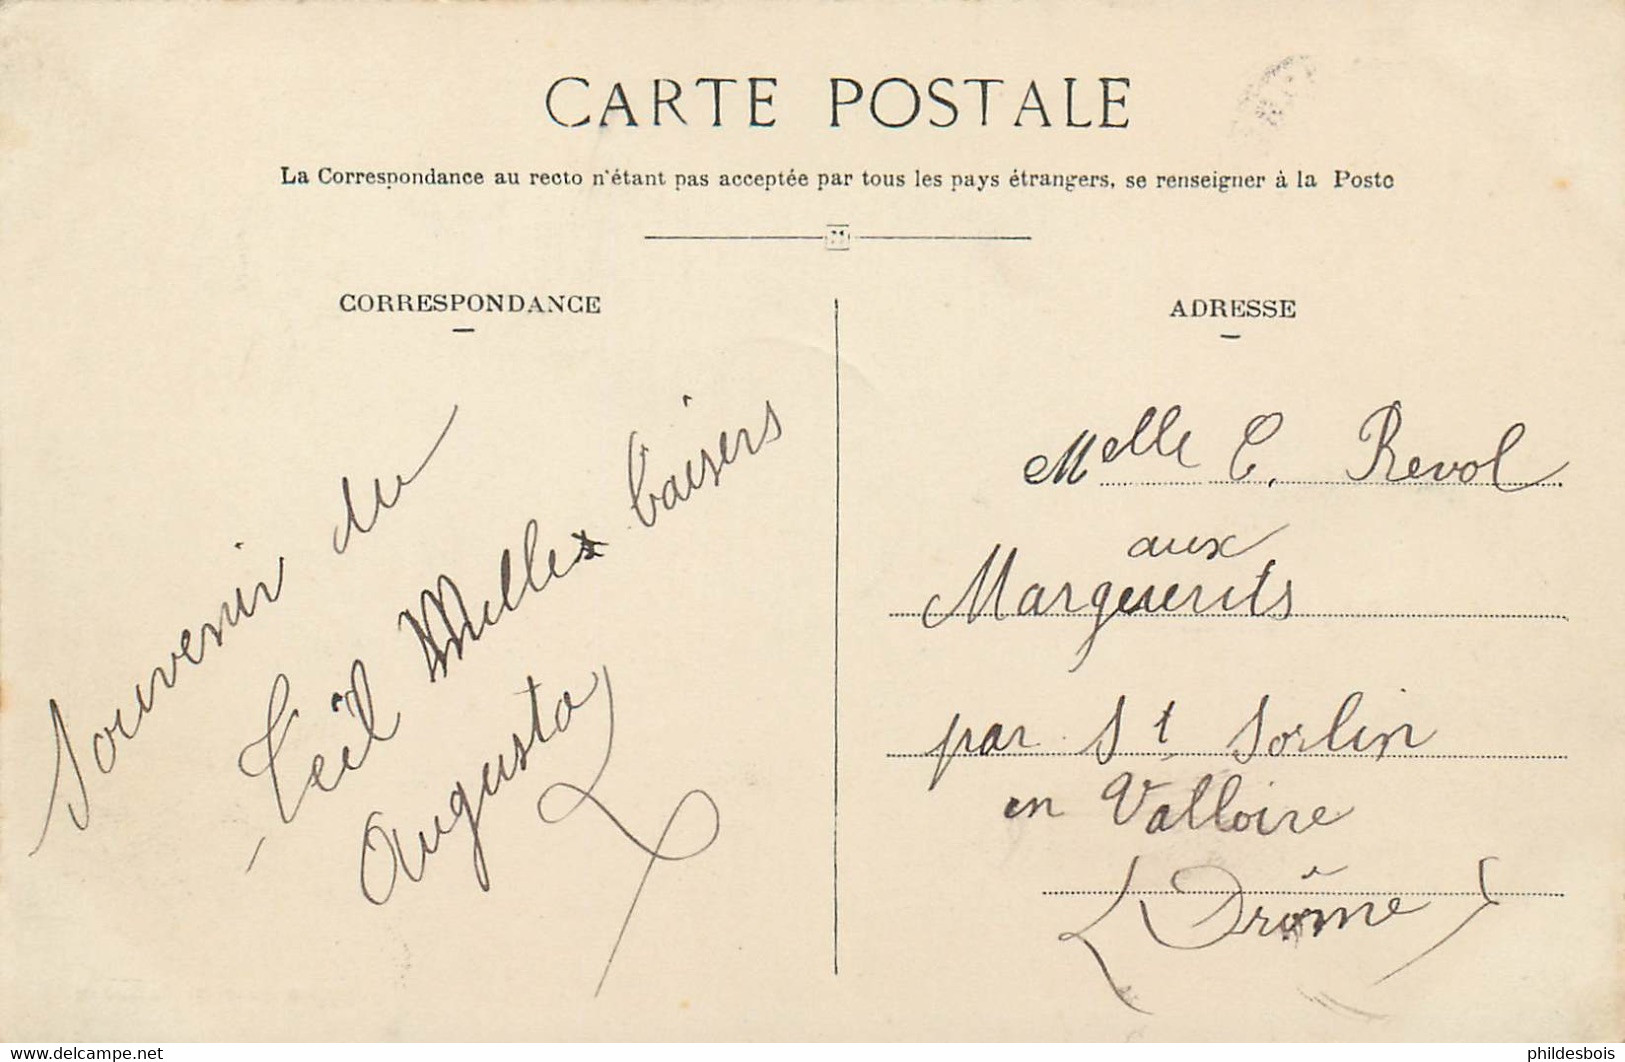 CARTE POSTALE
La Correspondance au recto n'étant pas acceptée par tous les pays étrangers, se renseigner à la Poste
CORRESPONDANCE
Souvenir du
Teil Milles baisers
Augusta
ADRESSE
Melle C. Revol
aux
Marguerits
par St Sorlin
en Valloire
(Drôme)
delcampe.net
phildesbois